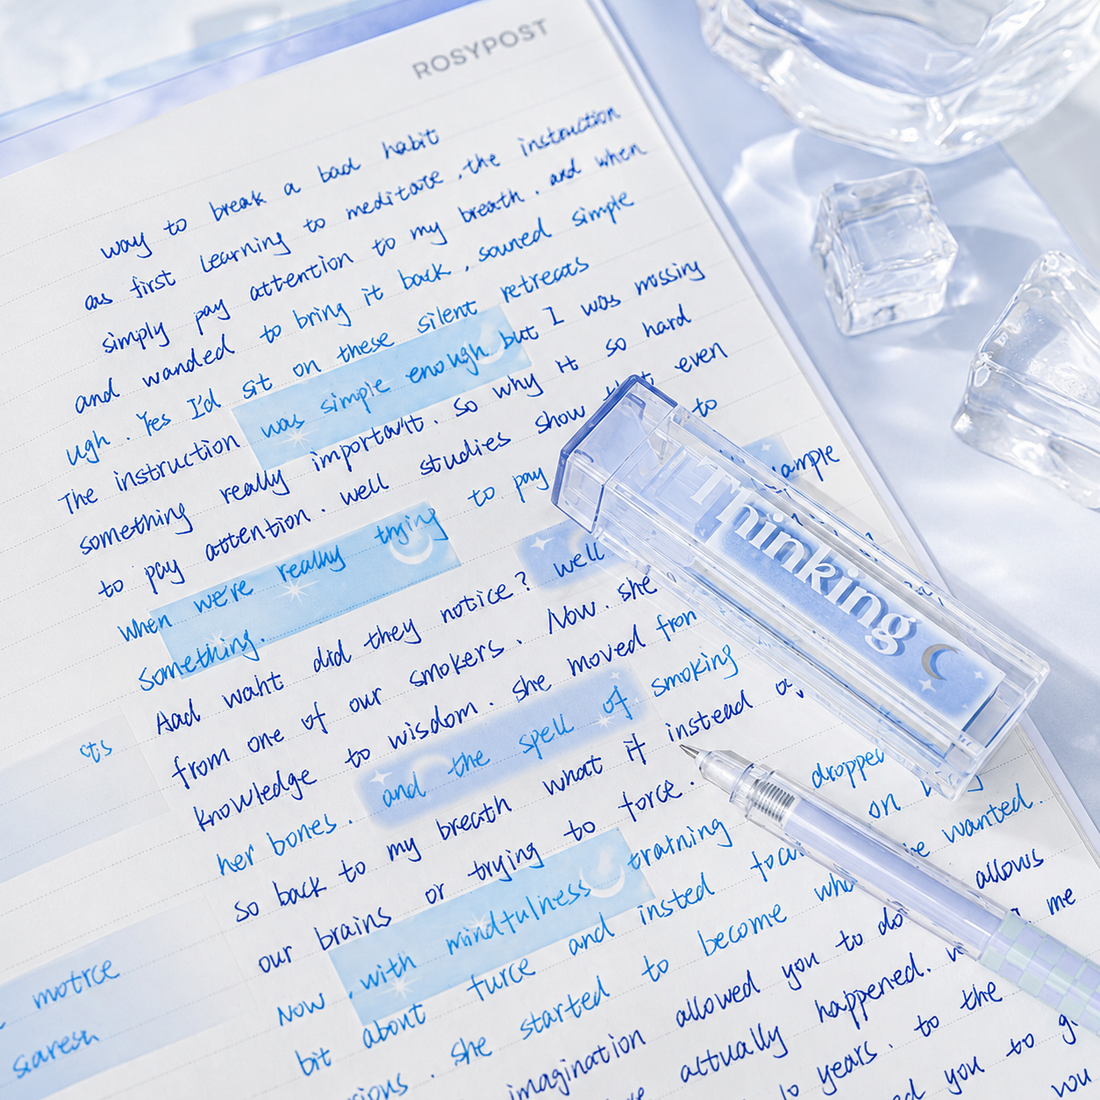 ROSYPOST
way to break a bad habit
as first learning to meditate , the instruction
simply pay attention to my breath . and when
and wanded to bring it back , souned simple
ugh . Yes I'd sit on these silent retreats
The instruction was simple enough but I was mossing
something really important . So why it so hard
to pay attention . well studies show that even
when we're really trying to pay to
something. ample
And waht did they notice ? well
from one of our smokers . Now . she
knowledge to wisdom . she moved from
her bones . and the spell of smoking
so back to my breath what if instead
our brains or trying to force .
Now , with mindfulness training dropped
bit about turce and insted on
she started to become wanted .
imagination allowed you to do allows
actually happened . me
years . to the
you to
you
cts
motrce
Thinking